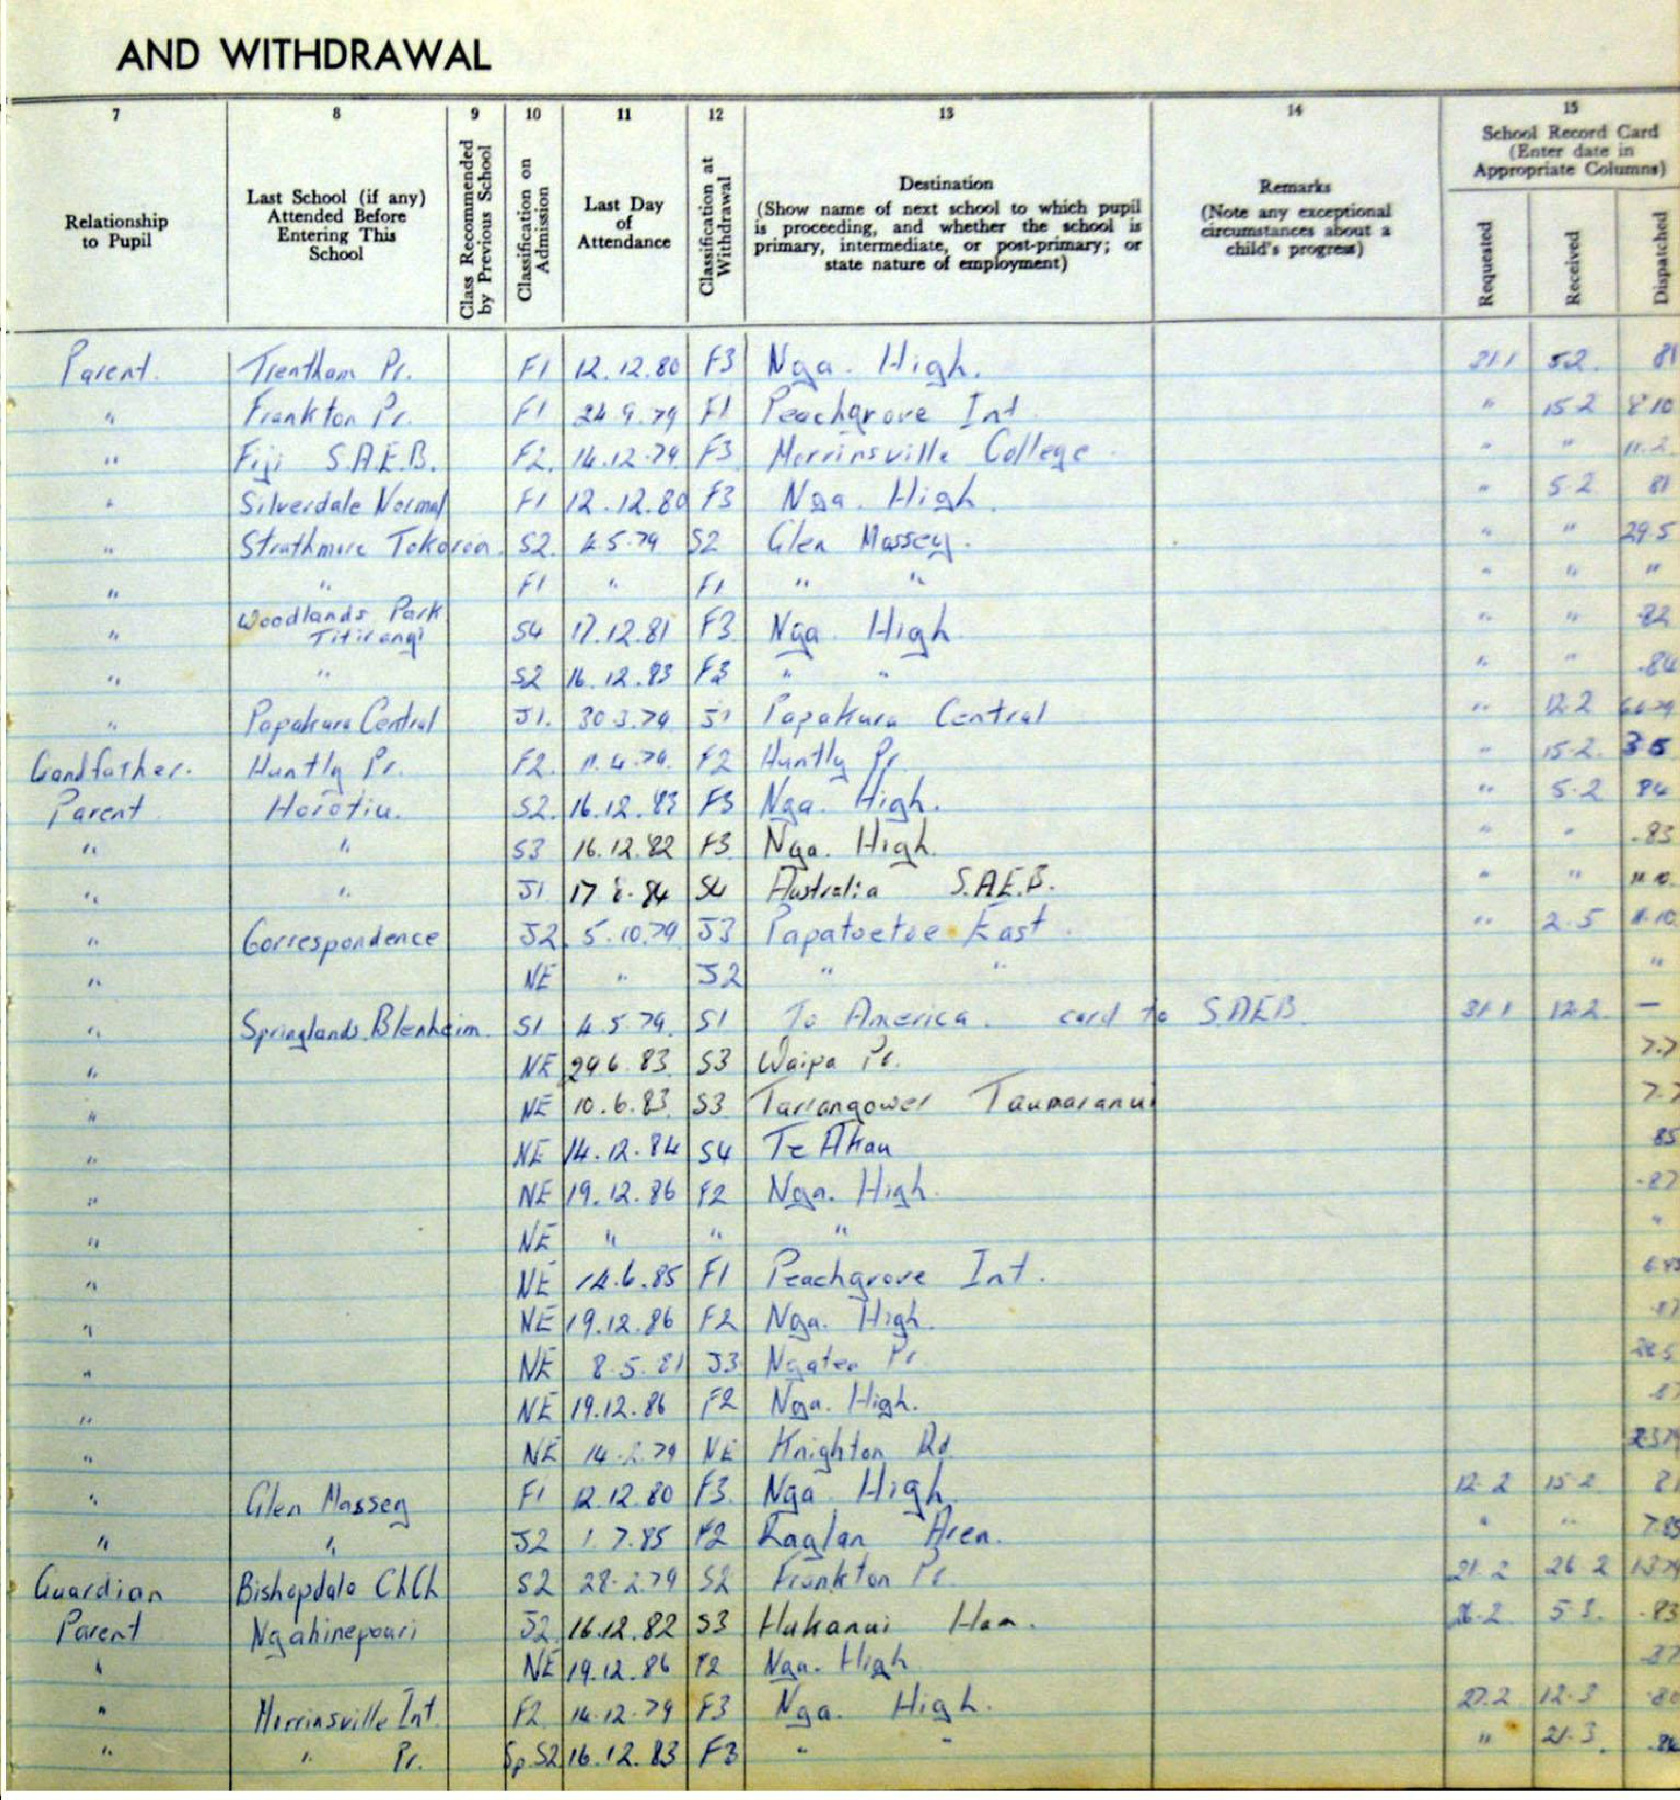 AND WITHDRAWAL
7 8 9 10 11 12 13 14 15
Relationship to Pupil
Last School (if any) Attended Before Entering This School
Class Recommended by Previous School
Classification on Admission
Last Day of Attendance
Classification at Withdrawal
Destination
(Show name of next school to which pupil is proceeding, and whether the school is primary, intermediate, or post-primary; or state nature of employment)
Remarks
(Note any exceptional circumstances about a child's progress)
School Record Card
(Enter date in Appropriate Columns)
Requested Received Dispatched
Parent. Trentham Pr. F1 12.12.80 F3 Nga. High. 31.1 5.2. 81
" Frankton Pr. F1 24.9.79 F1 Peachgrove Int. " 15.2 8.10
" Fiji S.A.E.B. F2. 14.12.79 F3 Morrinsville College " " 11.2.
" Silverdale Normal F1 12.12.80 F3 Nga. High. " 5.2 81
" Strathmore Tokoroa. S2. 4.5.79 S2 Glen Massey. " " 29.5
" " F1 " F1 " " " " "
" Woodlands Park Titirangi S4 17.12.81 F3 Nga. High. " " .82
" " S2 16.12.83 F3 " " " " .84
" Papakura Central J1. 30.3.79 J1 Papakura Central " 12.2
Gandfather. Huntly Pr. F2. 11.4.79. F2 Huntly Pr. " 15.2. 3.5
Parent Horotiu. S2. 16.12.83 F3 Nga. High. " 5.2 84
" " S3 16.12.82 F3. Nga. High. " " .83
" " J1 17 84 S4 Australia S.A.E.B. " "
" Correspondence J2. 5.10.79 J3 Papatoetoe East. " 2.5 11.10
" NE " J2 " " "
" Springlands Blenheim. S1 4.5.79. S1 To America. card to S.A.E.B. 31.1 12.2. —
" NE 29.6.83. S3 Waipa Pr. 7.7
" NE 10.6.83. S3 Tarrangower Taumaranui 7.7
" NE 14.12.84 S4 Te Akau 85
" NE 19.12.86 F2 Nga. High. .87
" NE " " " "
" NE 14.6.85 F1 Peachgrove Int.
" NE 19.12.86 F2 Nga. High. .87
" NE 8.5.81 J3 Ngatea Pr.
" NE 19.12.86 F2 Nga. High. .87
" NE 14.2.79 NE Knighton Rd.
" Glen Massey F1 12.12.80 F3. Nga. High. 12.2 15.2 81
" " J2 1.7.85 F2 Raglan Area. " " 7.85
Guardian Bishopdale ChCh S2 28.2.79 S2 Frankton Pr. 21.2 26.2
Parent Ngahinepouri J2. 16.12.82 S3 Hukanui Ham. 26.2. 5.3. .83
" NE 19.12.86 F2 Nga. High .87
" Morrinsville Int. F2. 14.12.79 F3 Nga. High. 27.2 12.3 .80
" " Pr. Sp. S2 16.12.83 F3 " " " 21.3. .84